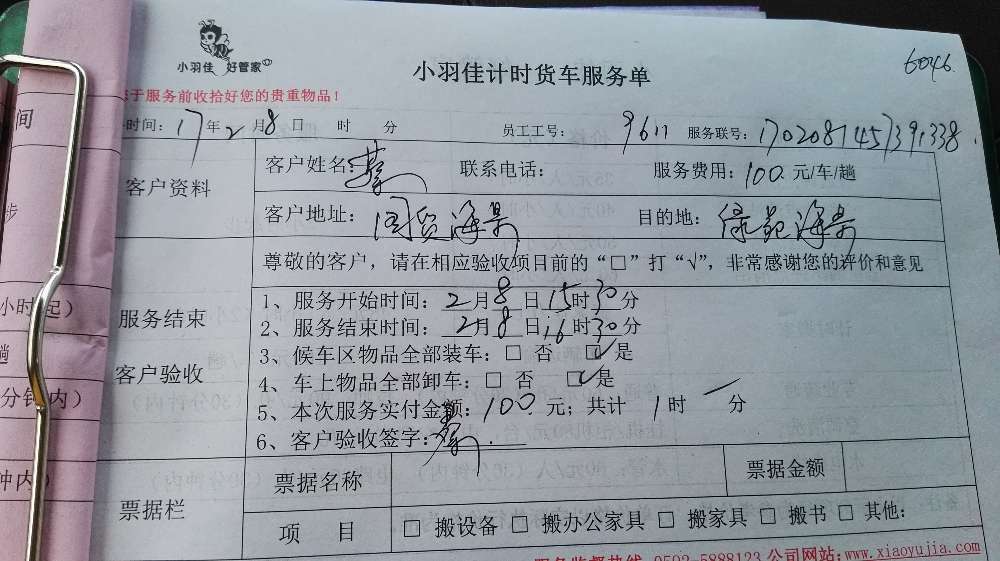 小羽佳 好管家
小羽佳计时货车服务单
6046.
于服务前收拾好您的贵重物品！
时间：17年2月8日 时 分 员工工号：9611 服务联号：1702081457391338
客户资料
客户姓名：蔡 联系电话： 服务费用：100元/车/趟
客户地址：国贸海景 目的地：绿苑海景
服务结束
客户验收
尊敬的客户，请在相应验收项目前的“□”打“√”，非常感谢您的评价和意见
1、服务开始时间：2月8日15时30分
2、服务结束时间：2月8日16时30分
3、候车区物品全部装车：□ 否 ☑是
4、车上物品全部卸车：□ 否 ☑是
5、本次服务实付金额：100元；共计 1时 — 分
6、客户验收签字：蔡.
票据栏
票据名称 票据金额
项 目 □ 搬设备 □ 搬办公家具 □ 搬家具 □ 搬书 □ 其他：
服务监督热线 0592-5888123 公司网站：www.xiaoyujia.com
间
步
小时起）
趟
分钟内）
钟内）